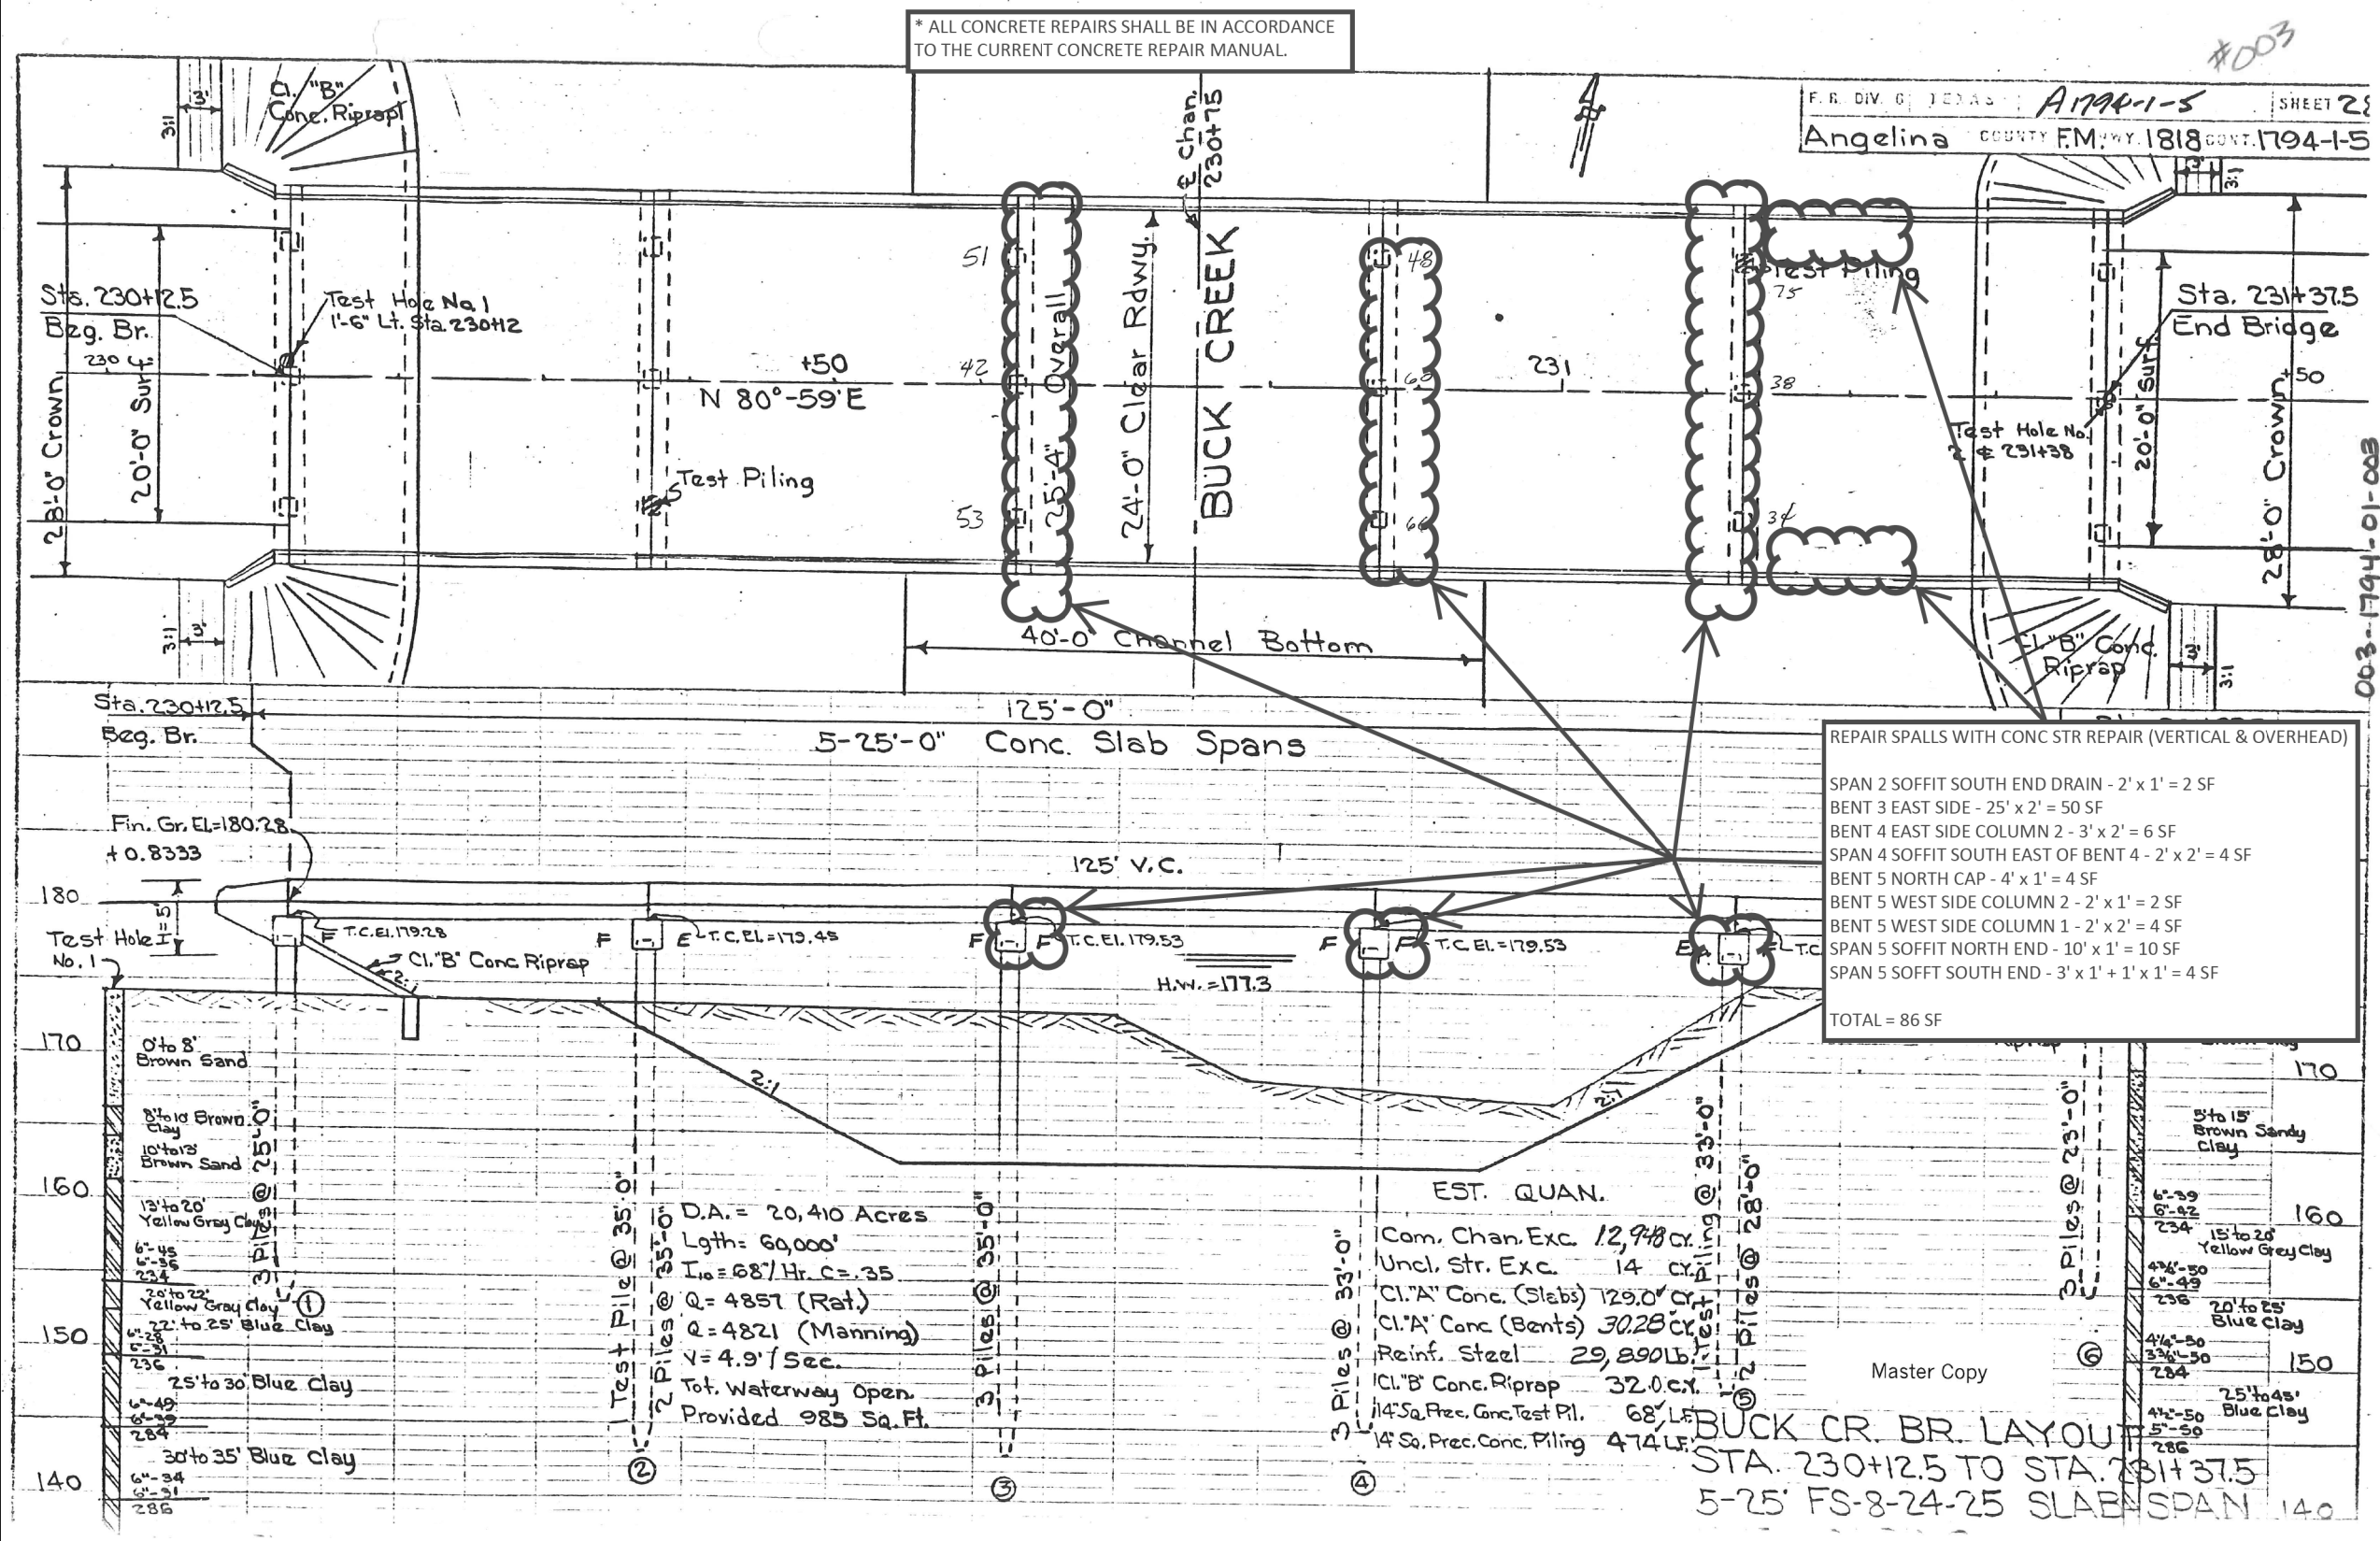 * ALL CONCRETE REPAIRS SHALL BE IN ACCORDANCE
TO THE CURRENT CONCRETE REPAIR MANUAL.
#003
F. R. DIV. 6 TEXAS A1794-1-5 SHEET
Angelina COUNTY F.M. HWY. 1818 CONT. 1794-1-5
Cl. "B"
Conc. Riprap
3'
3:1
28'-0" Crown
20'-0" Surf.
Sta. 230+12.5
Beg. Br.
230
Test Hole No. 1
1'-6" Lt. Sta. 230+12
+50
N 80°-59'E
Test Piling
51
42
53
25'-4" Overall
24'-0" Clear Rdwy.
℄ Chan.
230+75
BUCK CREEK
48
66
231
Test Piling
75
38
34
Sta. 231+37.5
End Bridge
+50
Test Hole No.
2 ℄ 231+38
20'-0" Surf.
28'-0" Crown
3'
3:1
3'
3:1
Cl. "B" Conc.
Riprap
3'
3:1
003-1794-01-003
40'-0" Channel Bottom
Sta. 230+12.5
Beg. Br.
125'-0"
5-25'-0" Conc. Slab Spans
REPAIR SPALLS WITH CONC STR REPAIR (VERTICAL & OVERHEAD)
SPAN 2 SOFFIT SOUTH END DRAIN - 2' x 1' = 2 SF
BENT 3 EAST SIDE - 25' x 2' = 50 SF
BENT 4 EAST SIDE COLUMN 2 - 3' x 2' = 6 SF
SPAN 4 SOFFIT SOUTH EAST OF BENT 4 - 2' x 2' = 4 SF
BENT 5 NORTH CAP - 4' x 1' = 4 SF
BENT 5 WEST SIDE COLUMN 2 - 2' x 1' = 2 SF
BENT 5 WEST SIDE COLUMN 1 - 2' x 2' = 4 SF
SPAN 5 SOFFIT NORTH END - 10' x 1' = 10 SF
SPAN 5 SOFFT SOUTH END - 3' x 1' + 1' x 1' = 4 SF
TOTAL = 86 SF
Fin. Gr. El.=180.28
+0.8333
125' V.C.
180
Test Hole
No. 1
F
T.C. El. 179.28
Cl. "B" Conc Riprap
2:1
F
E
T.C. El.=179.45
F
F
T.C. El. 179.53
H.W. = 177.3
F
F
T.C. El. = 179.53
E
T.C.
170
0' to 8'
Brown Sand
8' to 10' Brown
Clay
10' to 13'
Brown Sand
160
13' to 20'
Yellow Gray Clay
6"-45
6"-36
234
20' to 22'
Yellow Gray Clay
22' to 25' Blue Clay
150
6"-28
236
25' to 30' Blue Clay
6"-49
6"-39
284
30' to 35' Blue Clay
140
6"-34
6"-31
286
3 Piles @ 25'-0"
1
2:1
1 Test Pile @ 35'-0"
2 Piles @ 35'-0"
2
D.A. = 20,410 Acres
Lgth = 60,000'
I10 = .68"/Hr. C = .35
Q = 4857 (Rat.)
Q = 4821 (Manning)
V = 4.9'/Sec.
Tot. Waterway Open.
Provided 985 Sq. Ft.
3 Piles @ 35'-0"
3
3 Piles @ 33'-0"
4
EST. QUAN.
Com. Chan. Exc. 12,948 C.Y.
Uncl. Str. Exc. 14 C.Y.
Cl. "A" Conc. (Slabs) 129.0 C.Y.
Cl. "A" Conc (Bents) 30.28 C.Y.
Reinf. Steel 29,890 Lb.
Cl. "B" Conc. Riprap 32.0 C.Y.
14" Sq. Prec. Conc. Test Pil. 68 L.F.
14" Sq. Prec. Conc. Piling 474 L.F.
2:1
1 Test Piling @ 33'-0"
2 Piles @ 28'-0"
5
3 Piles @ 23'-0"
6
Riprap
170
5' to 15'
Brown Sandy
Clay
6"-39
6"-42
234
160
15' to 20'
Yellow Grey Clay
6"-49
236
20' to 25'
Blue Clay
284
150
25' to 45'
Blue Clay
4½"-50
5"-50
286
140
Master Copy
BUCK CR. BR. LAYOUT
STA. 230+12.5 TO STA. 231+37.5
5-25' FS-8-24-25 SLAB SPAN